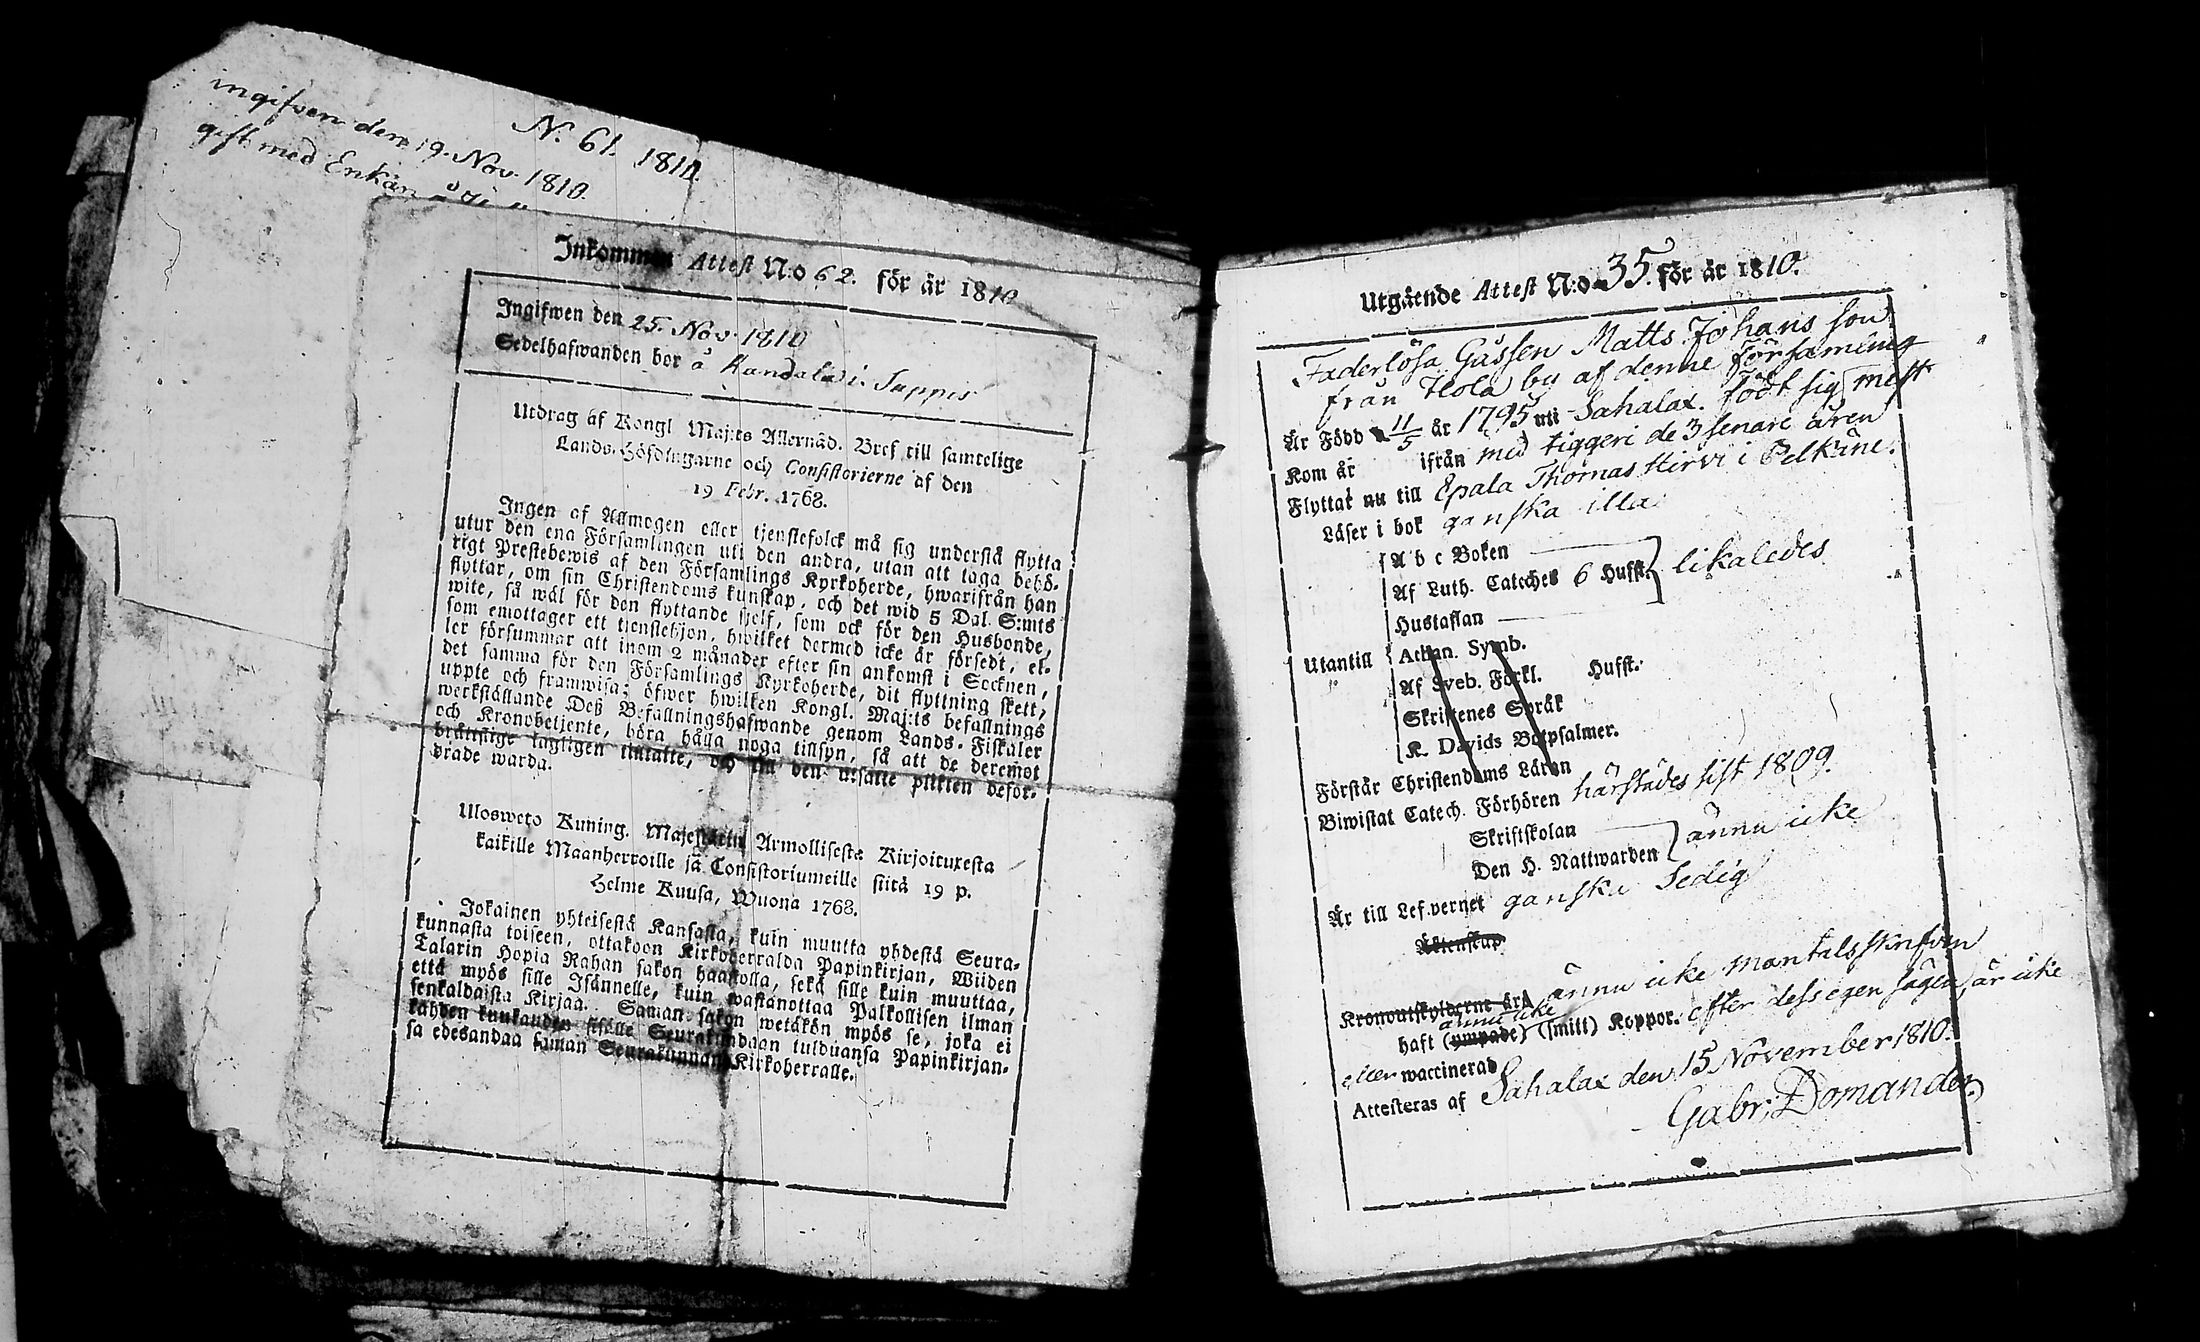 N. 61. 1810.
ingifven den 19. Nov. 1810.
gift med Enkan
Inkommen Attest N:o 62. för år 1810
Ingifwen den 25. Nov. 1810
Sedelhafwanden bor å Handala i Suppis
Utdrag af Kongl Maj:ts Allernåd. Bref till samtelige
Lands-Höfdingarne och Consistorierne af den
19 Febr. 1768.
Ingen af Allmogen eller tjenstefolck må sig understå flytta
utur den ena Församlingen uti den andra, utan att taga behö-
rigt Prestebewis af den Församlings Kyrkoherde, hwarifrån han
flyttar, om sin Christendoms kunskap, och det wid 5 Dal. S:mts
wite, så wäl för den flyttande sjelf, som ock för den Husbonde,
som emottager ett tjenstehjon, hwilket dermed icke är försedt, el-
ler försummar att inom 2 månader efter sin ankomst i Socknen,
det samma för den Församlings Kyrkoherde, dit flyttning skett,
uppte och framwisa; öfwer hwilken Kongl. Maj:ts befallnings
werkställande Deß Befallningshafwande genom Lands-Fiskaler
och Kronobetjente, böra hålla noga tillsyn, så att de deremot
brättslige lagligen tiltalte, och till den utsatte plikten befor-
drade warda.
Ulosweto Kuning. Majestetin Armollisesta Kirjoituxesta
kaikille Maanherroille ja Consistoriumeille siitä 19 p.
Helme Kuusa, Wuona 1768.
Jokainen yhteisestä Kansasta, kuin muutta yhdestä Seura-
kunnasta toiseen, ottakoon Kirkoherralda Papinkirjan, Wiiden
Talarin Hopia Rahan sakon haastolla, sekä sille kuin muuttaa,
että myös sille Isännelle, kuin wastanottaa Palkollisen ilman
senkaldaista Kirjaa. Saman sakon wetäkön myös se, joka ei
kahden kuukauden sisälle Seurakundaan tulduansa Papinkirjan-
sa edesandaa saman Seurakunnan Kirkoherralle.
Utgående Attest N:o 35. för år 1810.
Faderlösa Gåssen Matts Johans son
från Hola by af denne församling
Är Född d 11/5 år 1795 uti Sahalax. födt sig mest
Kom år ifrån med tiggeri de 3 senare åren
Flyttar nu till Epala Thomas Hirvi i Pelkäne.
Läser i bok ganska illa
A b c Boken
Af Luth. Cateches 6 Hufst. likaledes
Hustaflan
Utantill Athan. Symb.
Af Sveb. Förkl. Hufst.
Skriftenes Språk
K. Davids Botpsalmer.
Förstår Christendoms Läran
Biwistat Catech. Förhören härstädes sist 1809.
Skriftskolan
Den H. Nattwarden ännu icke
Är till Lefvernet ganska Sedig
Äktenskap
Kronoutskylderne är ännu icke mantalsskrifven
ännu icke
haft (ympade) (smitt) Koppor. efter dess egen sägen, är icke
eller waccinerad
Attesteras af Sahalax den 15 November 1810.
Gabr: Domander.